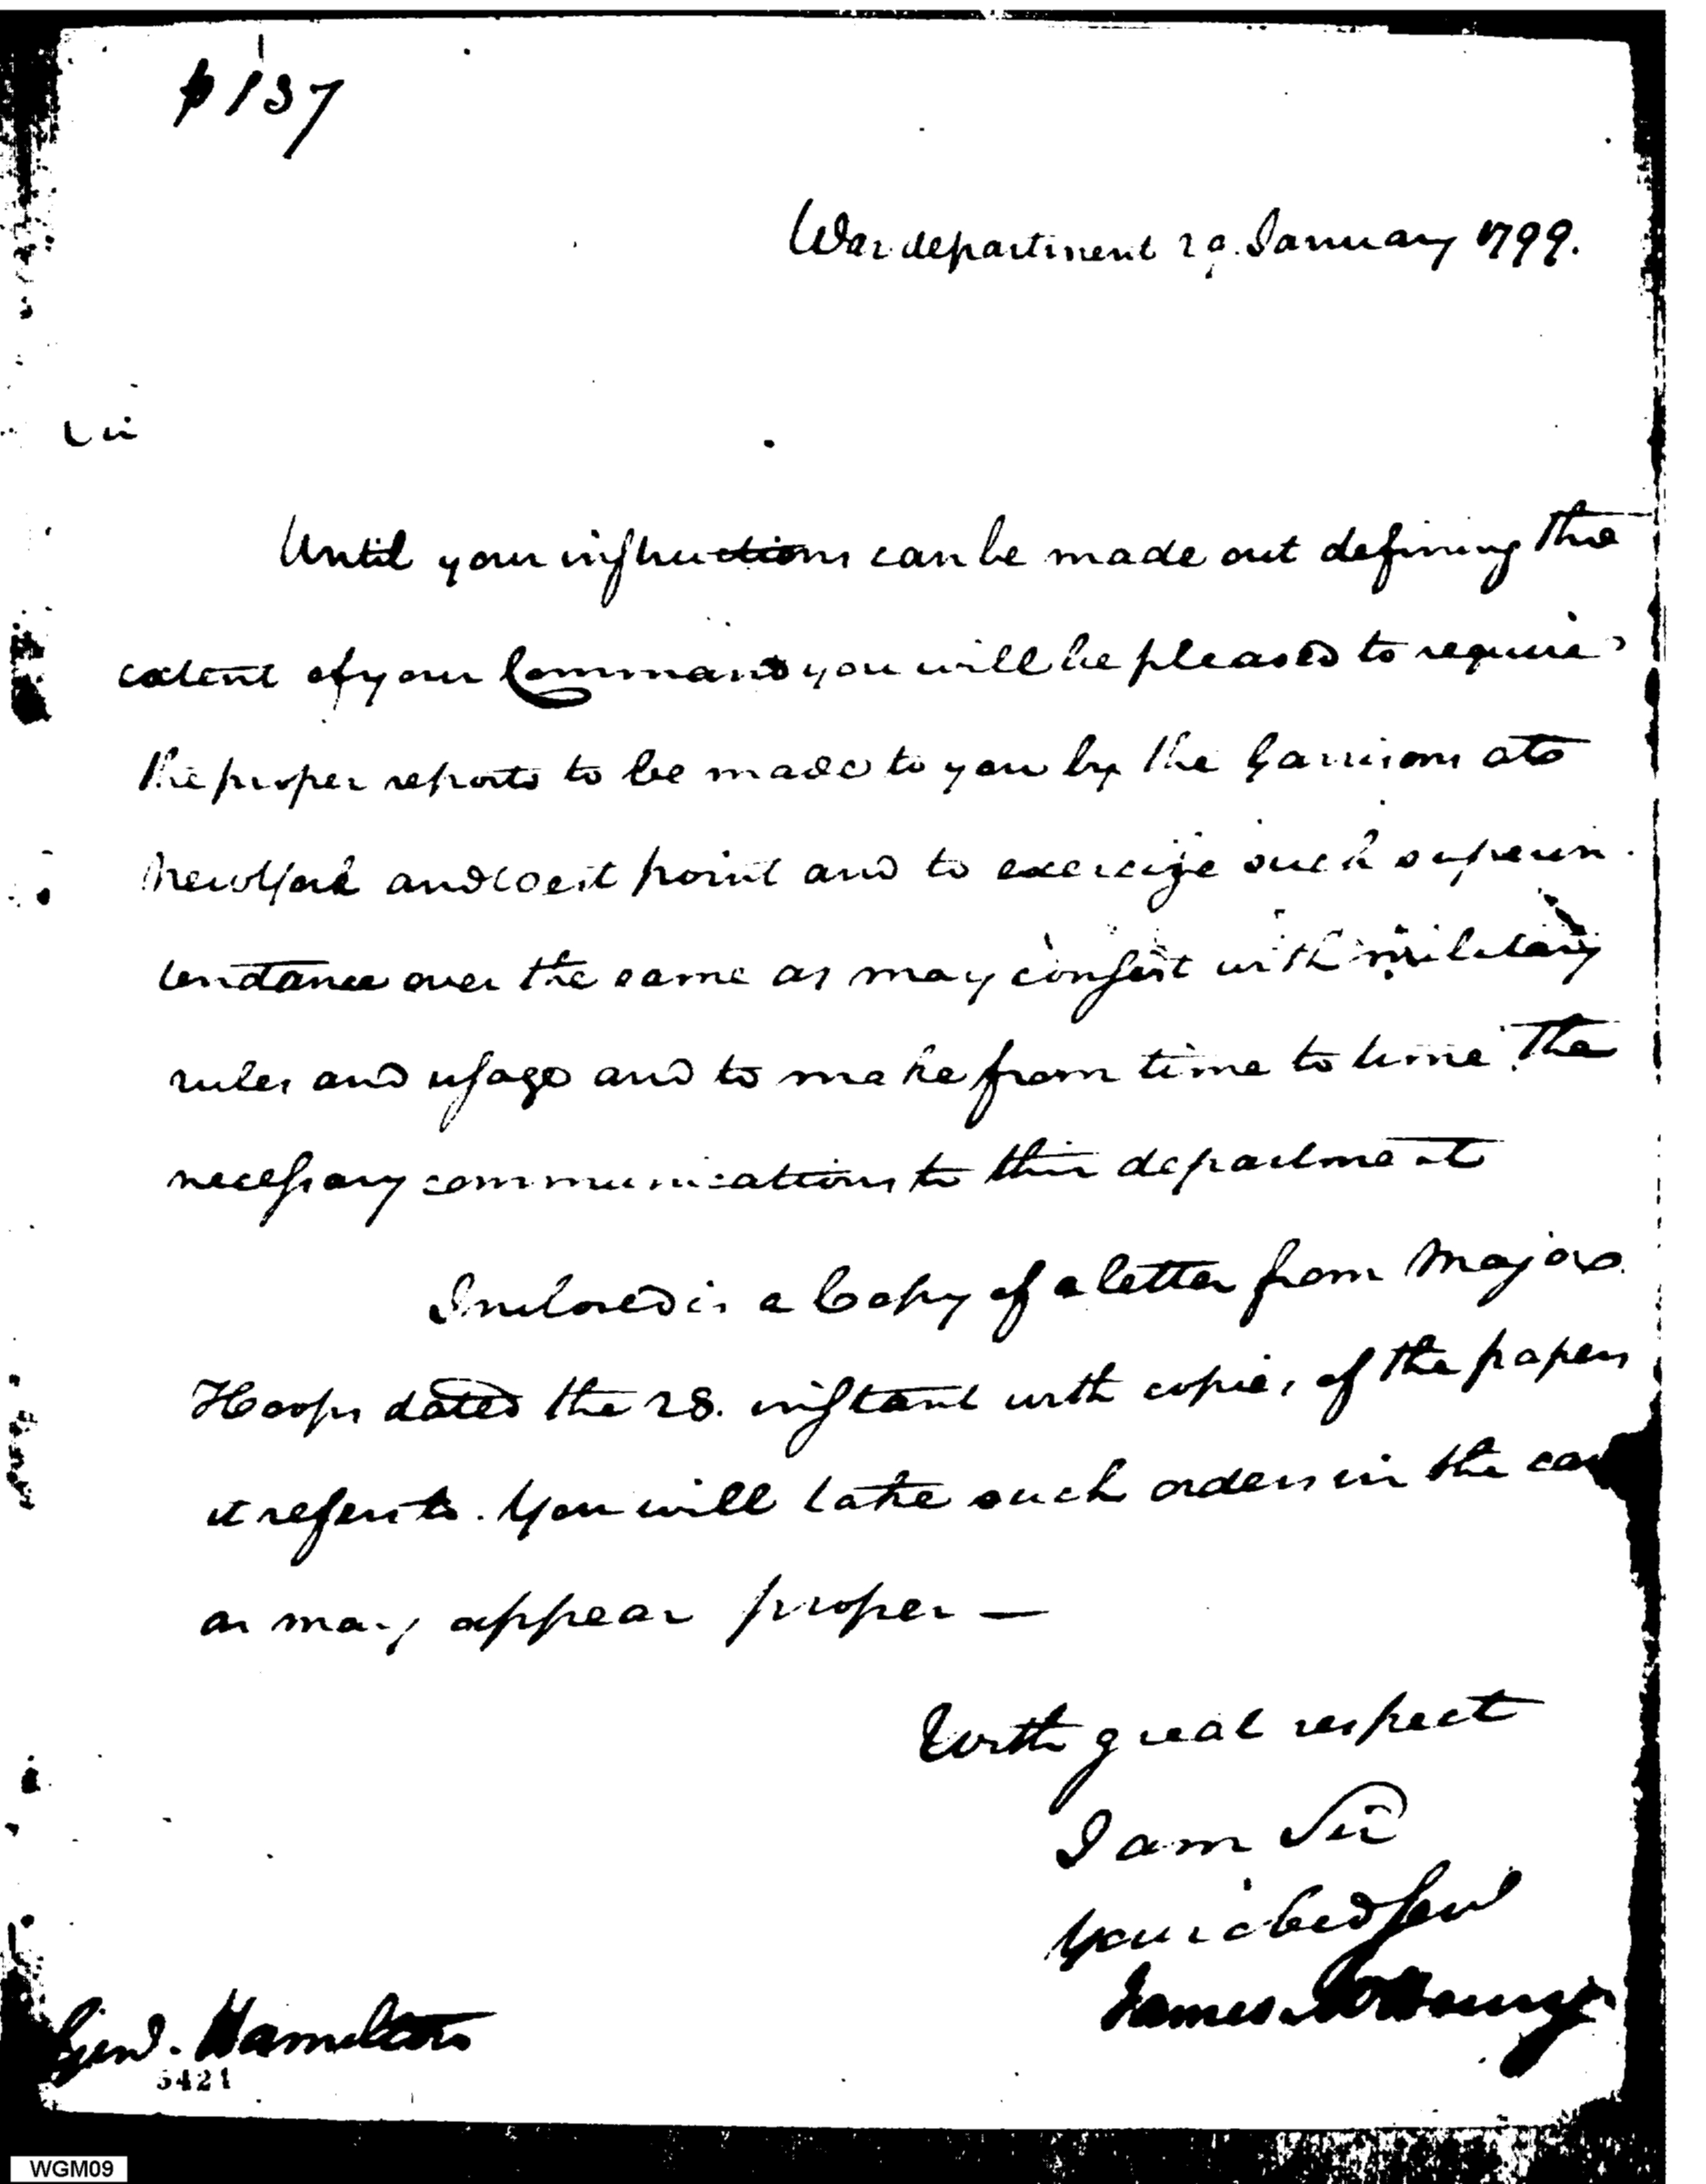 p 137
War department 29. January 1799.
Sir
Until your instructions can be made out defining the
extent of your Command you will be pleased to require
the proper reports to be made to you by the Garrisons at
New York and west point and to exercise such superin-
tendance over the same as may consist with military
rules and usage and to make from time to time the
necessary communications to this department
Inclosed is a Copy of a letter from Major
Hoops dated the 28. instant with copies of the papers
it refers to. You will take such orders in the case
as may appear proper —
With great respect
I am Sir
Your obed Servt
James McHenry
Genl. Hamilton
5421
WGM09